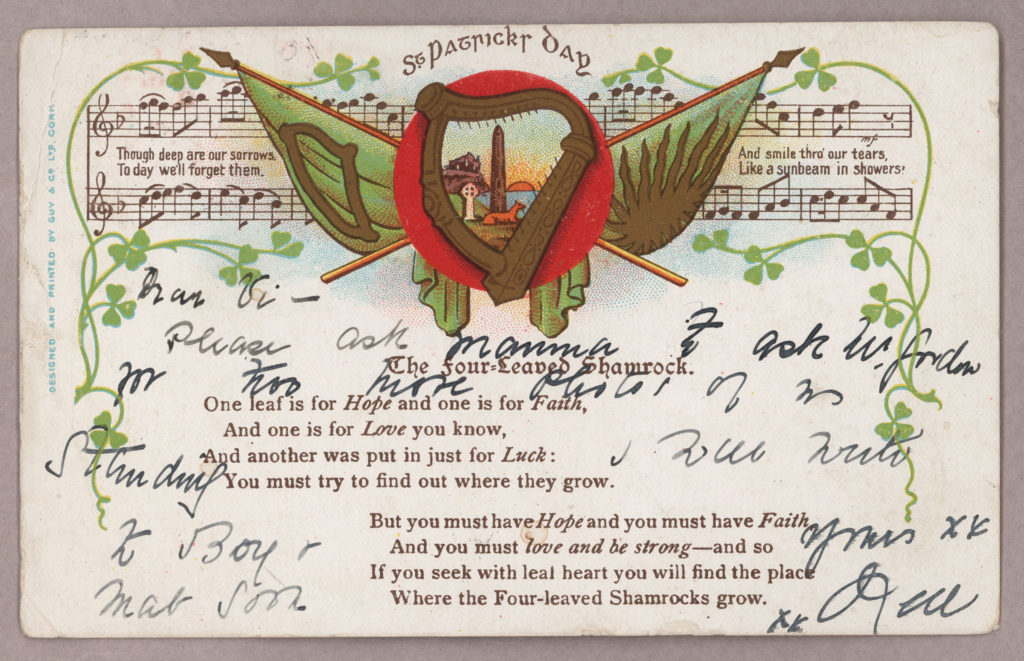 St Patrick's Day
Though deep are our sorrows,
To day we'll forget them.
mf
And smile thro' our tears,
Like a sunbeam in showers!
DESIGNED AND PRINTED BY GUY & Co LTD CORK.
Dear Vi —
Please ask mamma to ask Mr. Jordan
for two more photos of us
Standing
I will write
to Boy &
Mab soon
Yours xx
xx
The Four-Leaved Shamrock.
One leaf is for Hope and one is for Faith,
And one is for Love you know,
And another was put in just for Luck:
You must try to find out where they grow.
But you must have Hope and you must have Faith
And you must love and be strong—and so
If you seek with leal heart you will find the place
Where the Four-leaved Shamrocks grow.